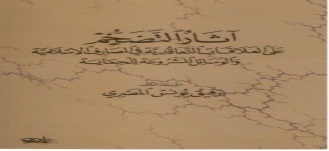 آثار التضخم
على العلاقات التعاقدية في المصارف الإسلامية
والوسائل المشروعة للحماية
رفيق يونس المصري